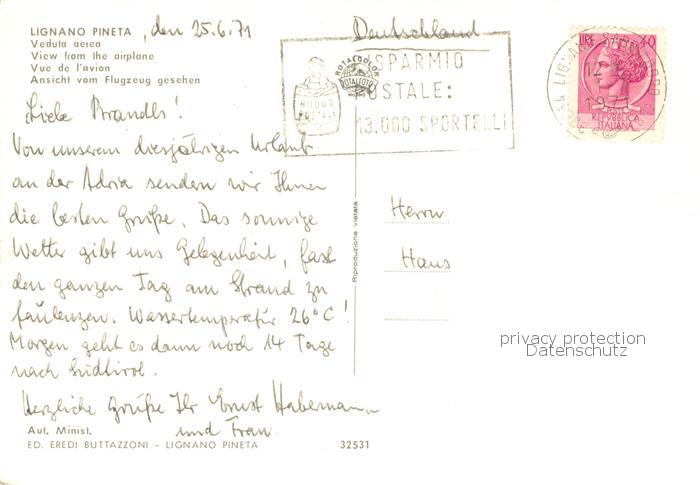 LIGNANO PINETA, den 25.6.71
Veduta aerea
View from the airplane
Vue de l'avion
Ansicht vom Flugzeug gesehen
Deutschland
RISPARMIO
POSTALE:
13.000 SPORTELLI
BUONO
POSTALE
ROTALCOLOR
ROTALFOTO
LIRE 40
REPVBBLICA
ITALIANA
1971
Liebe Brandls!
Von unserem diesjährigen Urlaub
an der Adria senden wir Ihnen
die besten Grüße. Das sonnige
Wetter gibt uns Gelegenheit, fast
den ganzen Tag am Strand zu
faulenzen. Wassertemperatur 26°C!
Morgen geht es dann noch 14 Tage
nach Südtirol.
Herzliche Grüße Ihr Ernst Habermann
und Frau.
Riproduzione vietata
Herrn
Hans
privacy protection
Datenschutz
Aut. Minist.
ED. EREDI BUTTAZZONI - LIGNANO PINETA
32531